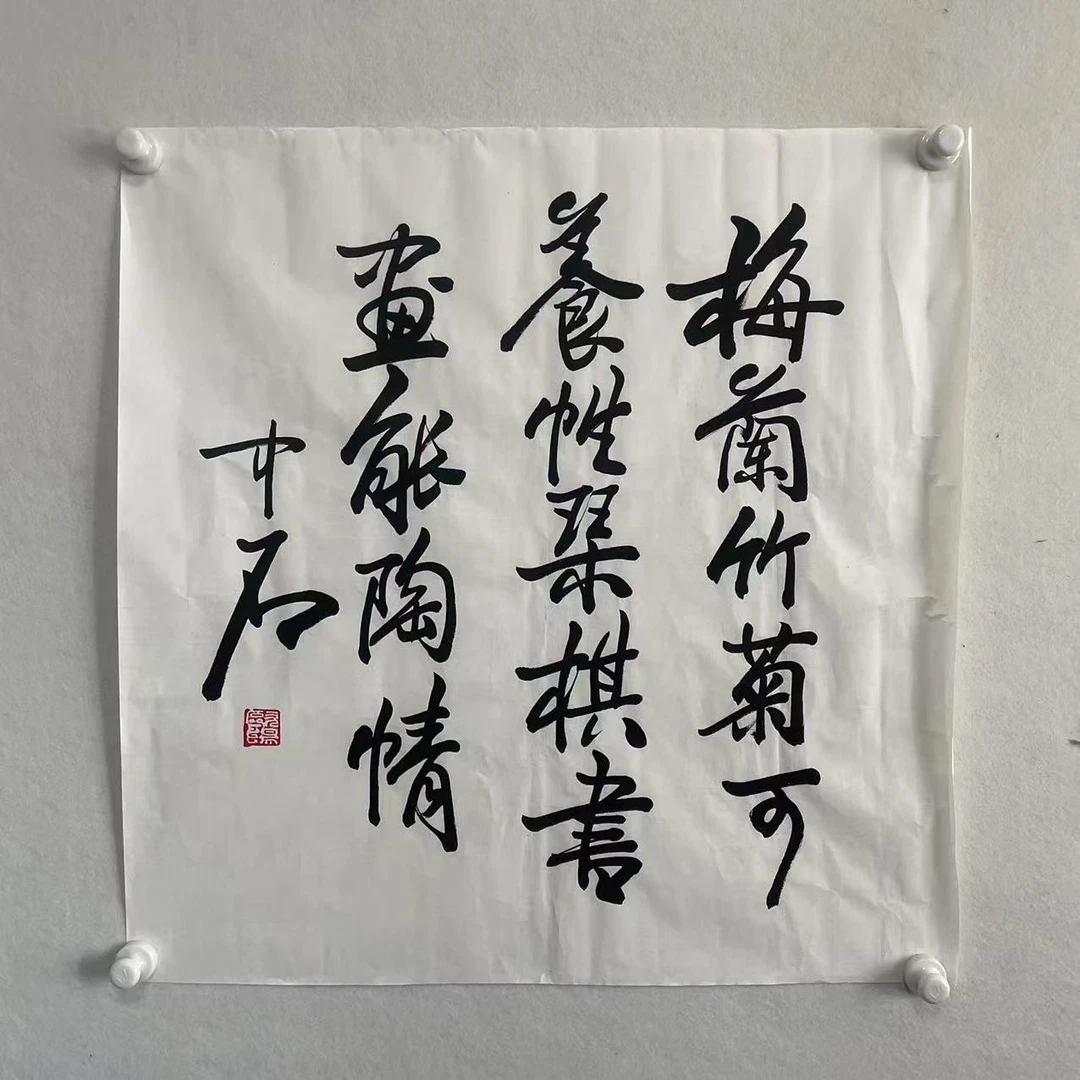 梅蘭竹菊可
養性琹棋書
畫能陶情
中石